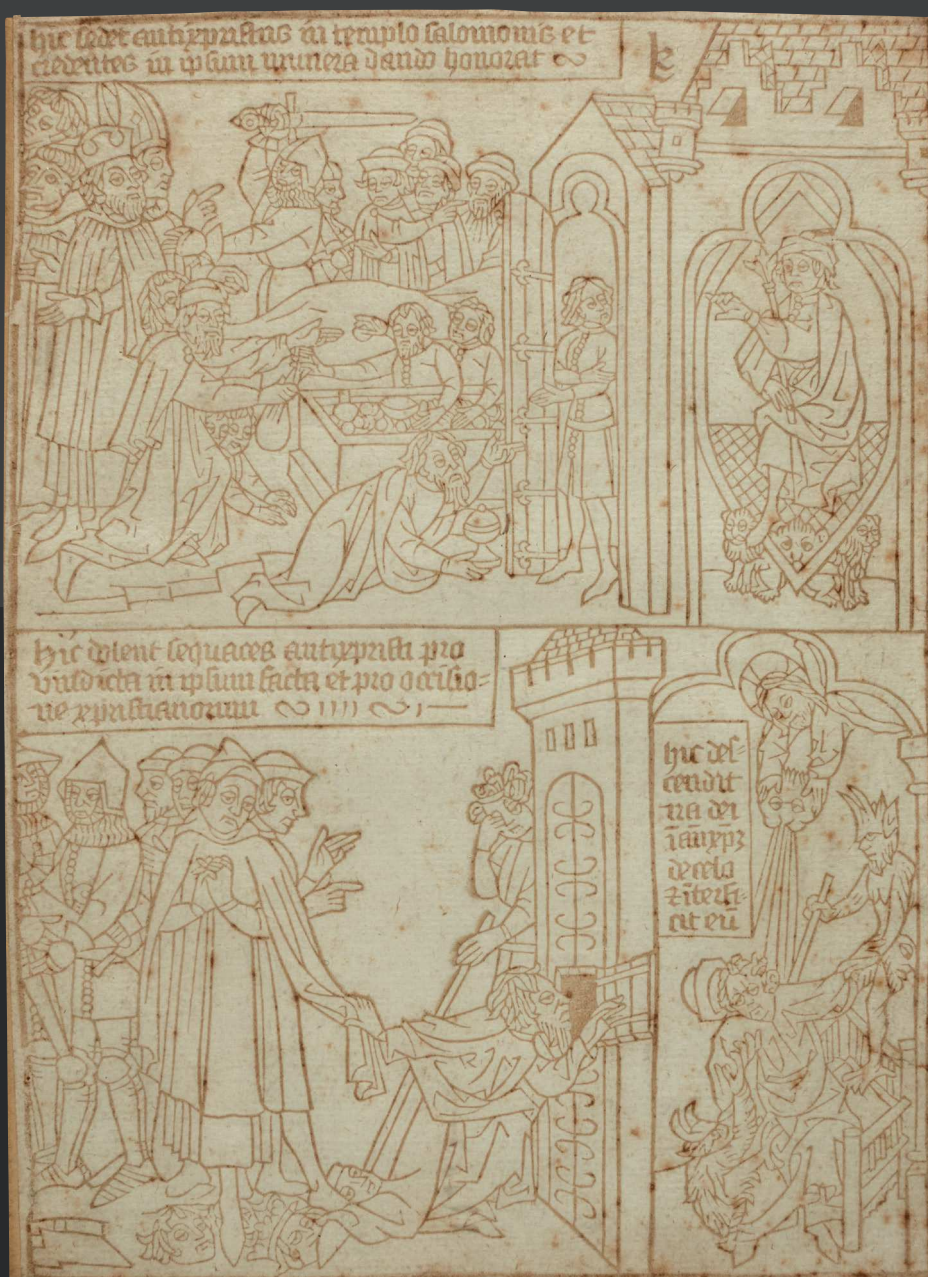 hic sedet antixpristus in templo salomonis et
credentes in ipsum munera dando honorat
k
hic dolent sequaces antixpristi pro
vindicta in ipsum facta et pro occisio-
ne xpristianorum
hic des-
cendit
ira dei
ī antxpz
de celo
⁊ īterfi-
cit eū